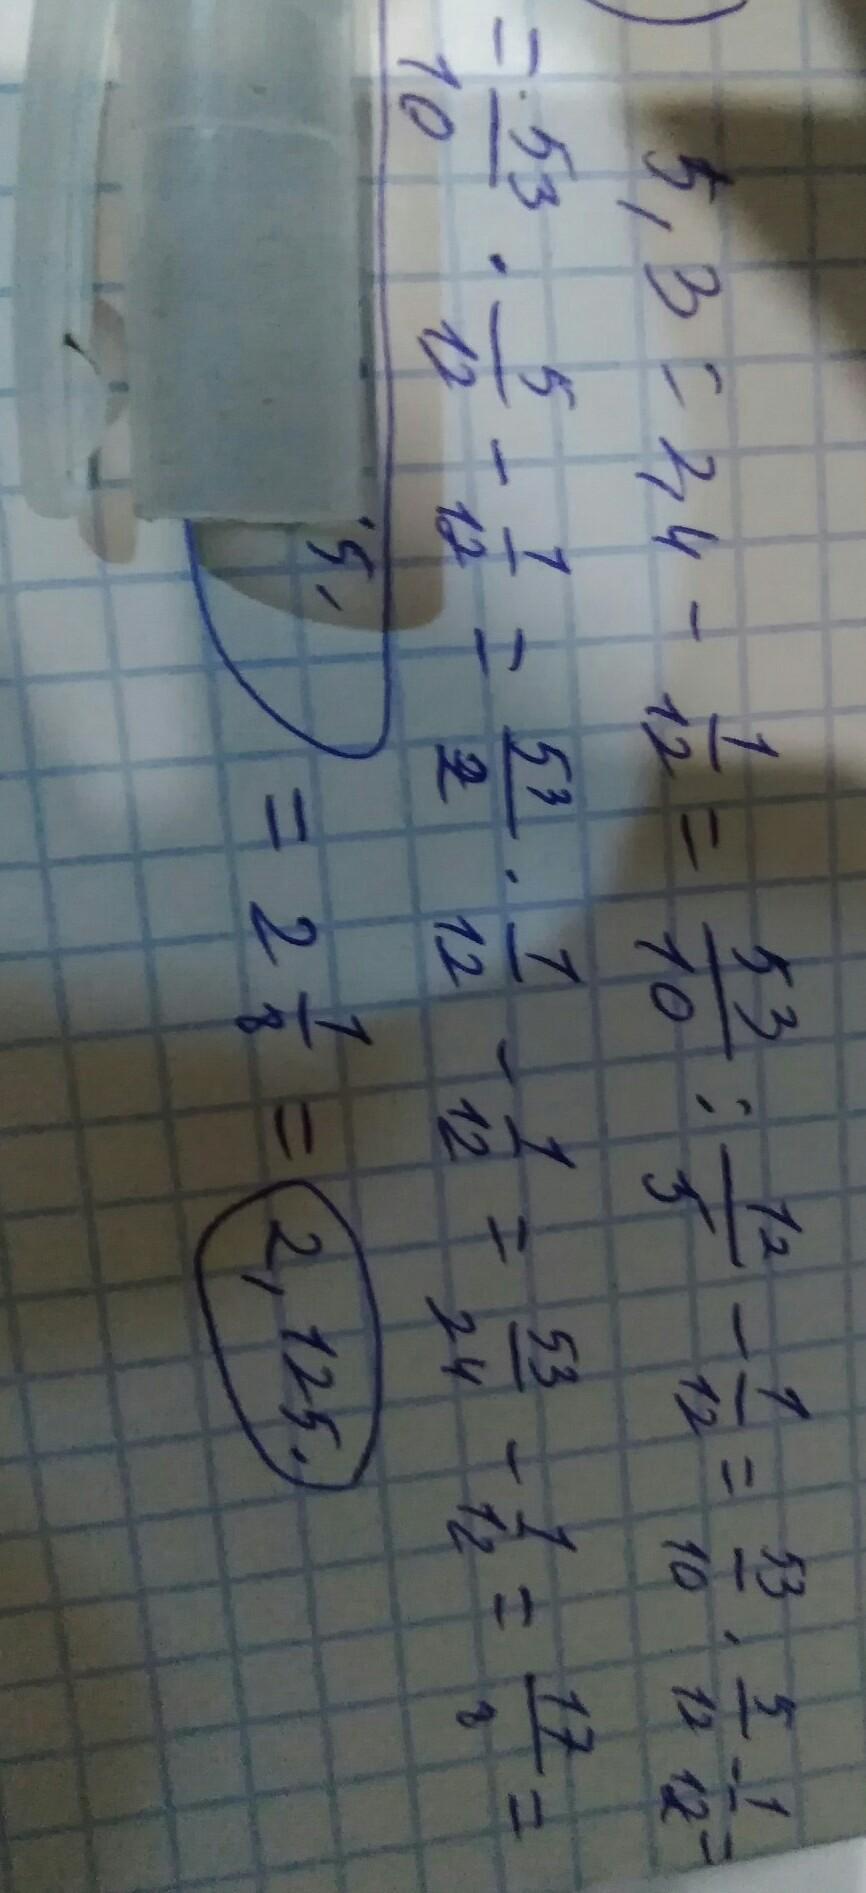 5,3 : 2,4 - 1/12 = 53/10 : 12/5 - 1/12 = 53/10 · 5/12 - 1/12 =
= 53/10 · 5/12 - 1/12 = 53/2 · 1/12 - 1/12 = 53/24 - 1/12 = 17/8 =
= 2 1/8 = 2,125.